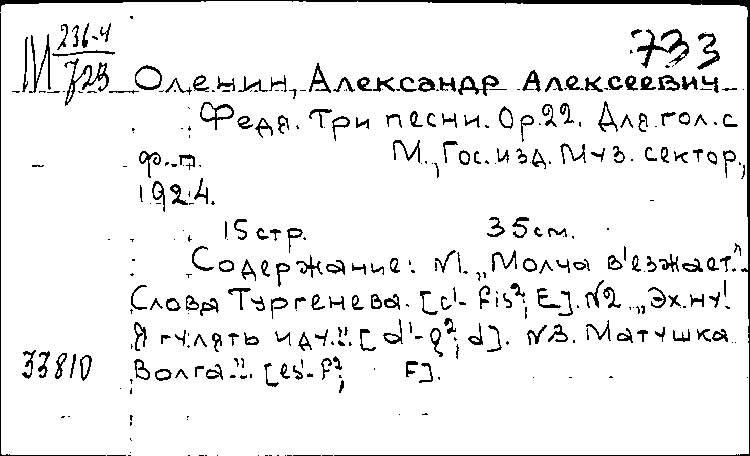 М 236-4/723
733
Оленин, Александр Алексеевич
Федя. Три песни. Ор.22. Для гол. с
ф.-п. М., Гос. изд. Муз. сектор,
1924.
15 стр. 35 см.
Содержание: №1. „Молча в'езжает."-
Слова Тургенева. [c¹- fis²; E]. №2. „Эх. ну!
Я гулять иду.". [d¹-g²; d]. №3. Матушка
33810 Волга.". [es¹-f²; F].